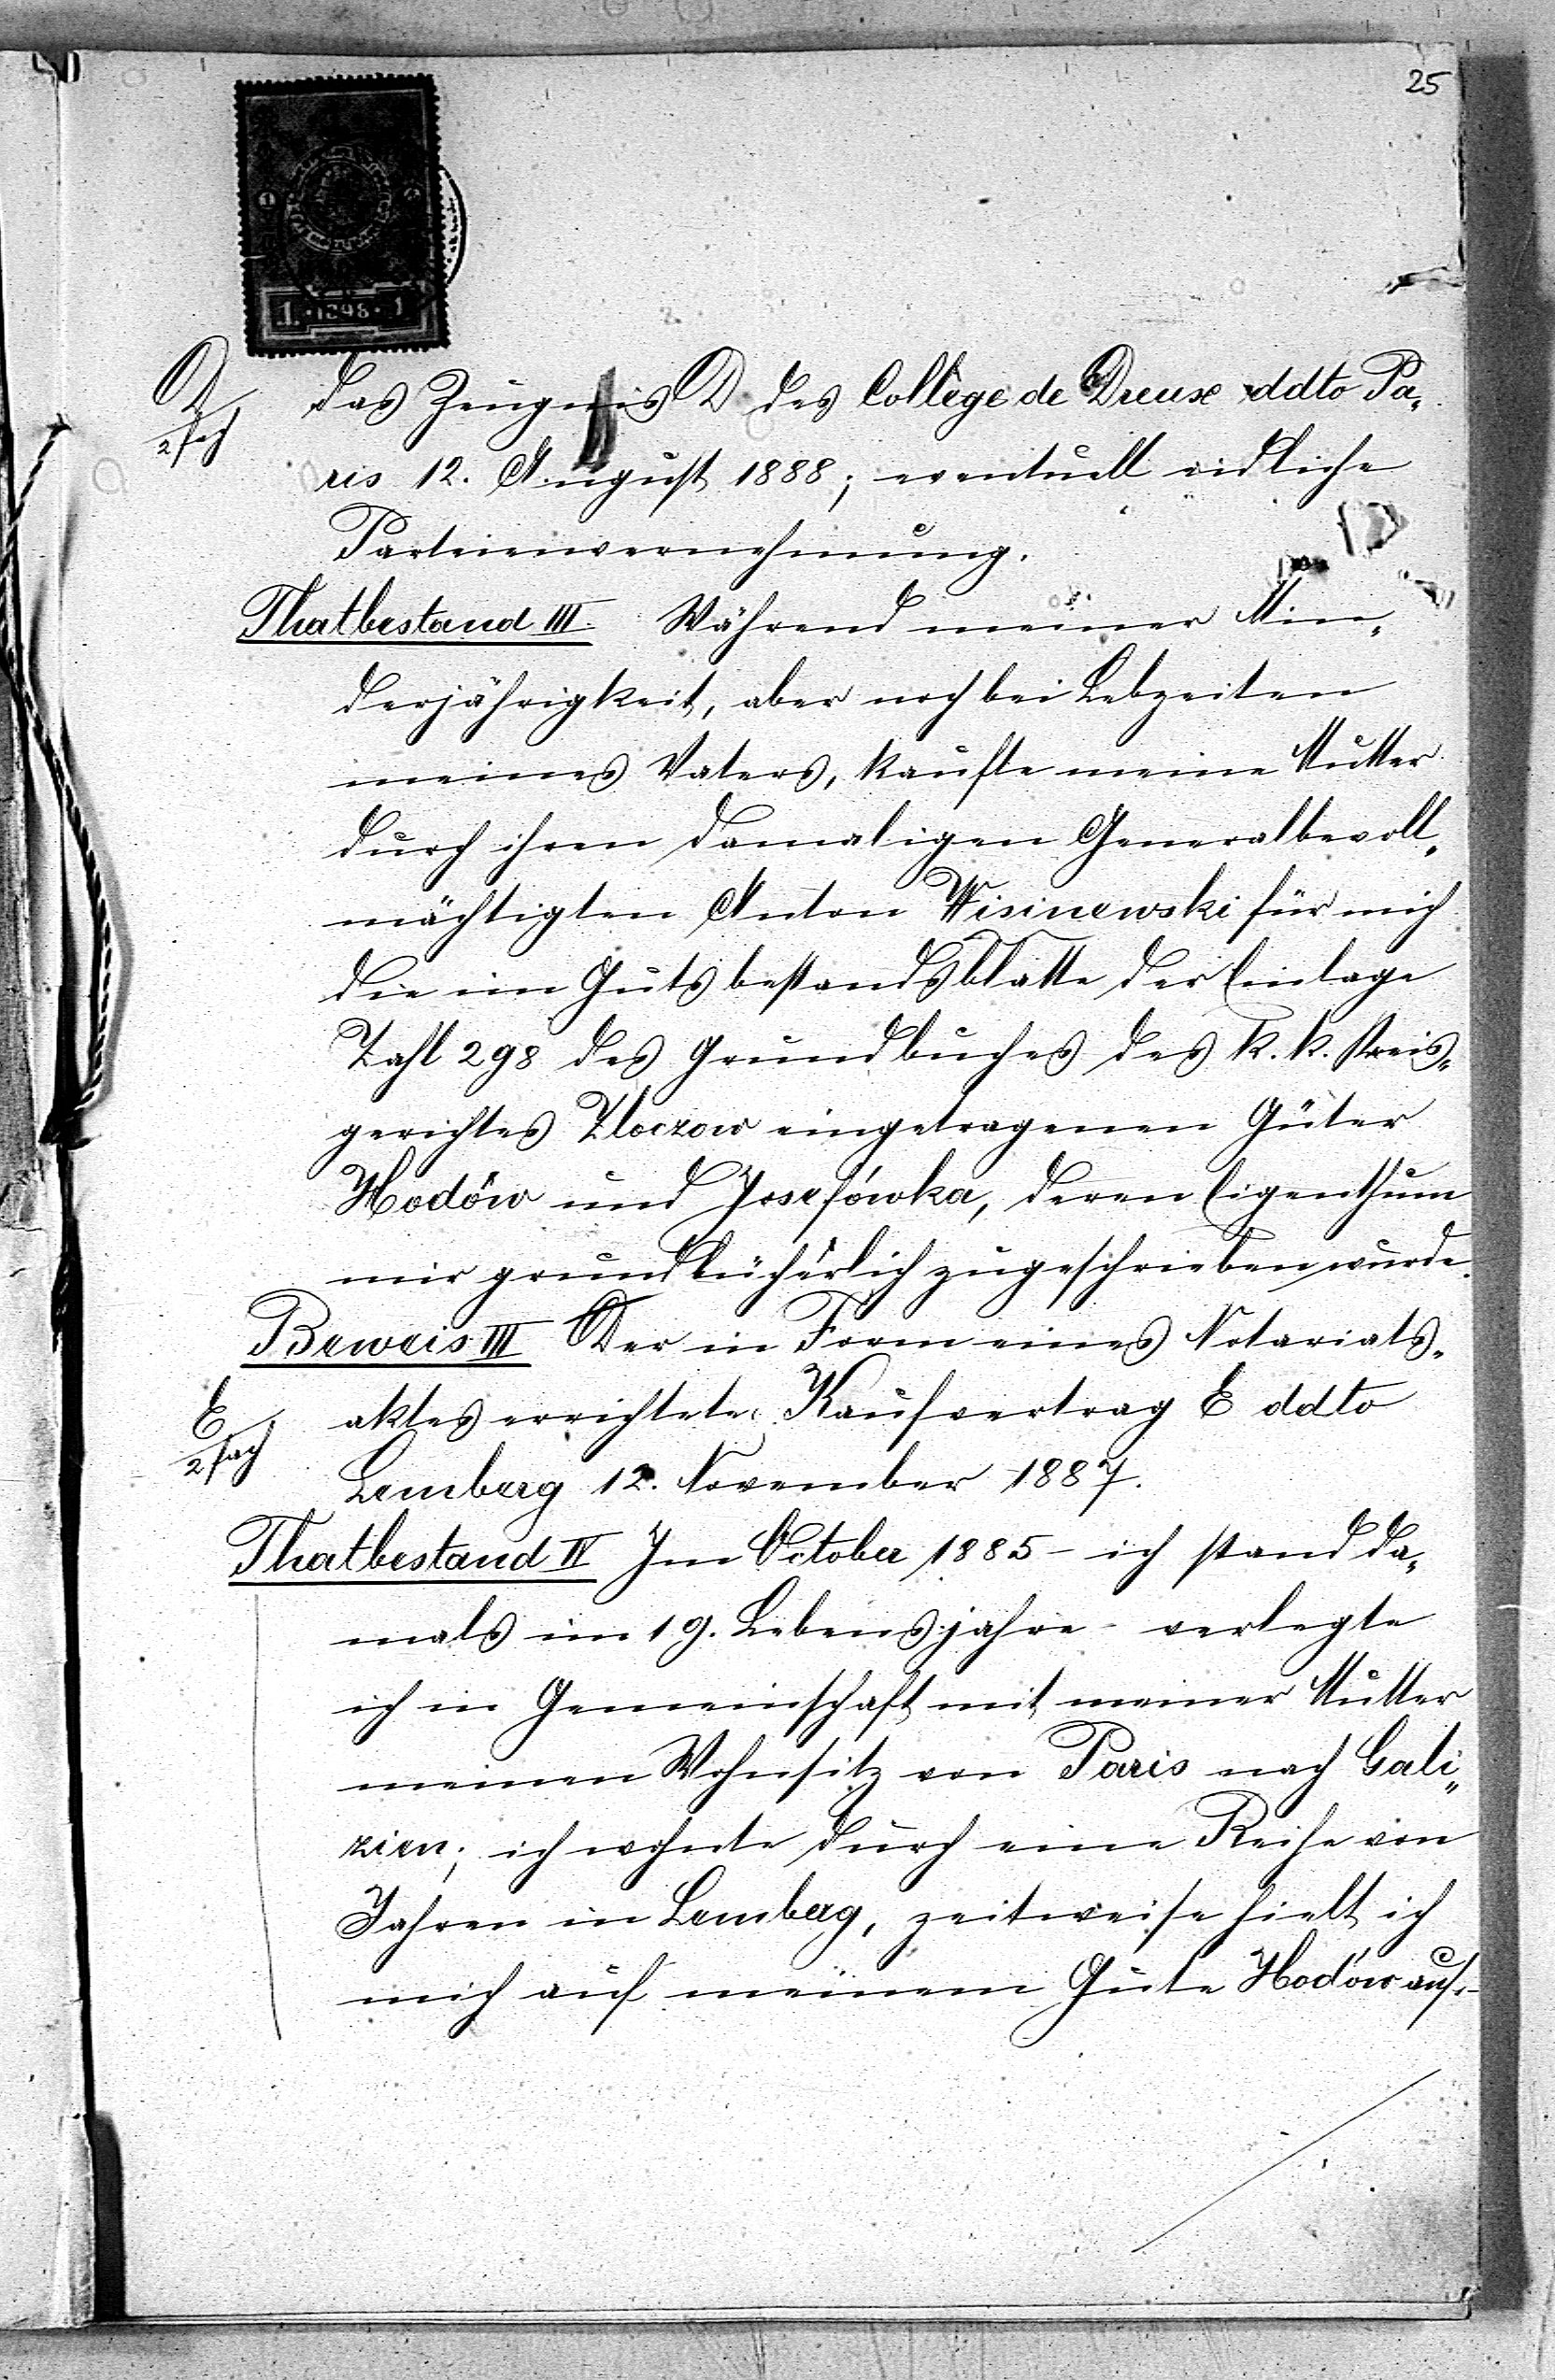 25
1. 1898. 1
D
2fach
das Zeugnis D des Collège de Dreux ddto Pa„
ris 12. August 1888; eventuell eidliche
Parteienvernehmung.
Thatbestand III. Während meiner Min„
derjährigkeit, aber noch bei Lebzeiten
meines Vaters, kaufte meine Mutter
durch ihren damaligen Generalbevoll„
mächtigten Anton Wisinewski für mich
die im Gutsbestandsblatte der Einlage
Zahl 298 des Grundbuches des k. k. Kreis„
gerichtes Zloczow eingetragenen Güter
Hodów und Josefówka, deren Eigenthum
mir grundbücherlich zugeschrieben wurde.
Beweis III Der in Form eines Notariats„
E
2fach
aktes errichtete Kaufvertrag E ddto
Lemberg 12. November 1887.
Thatbestand IV Im October 1885 – ich stand da„
mals im 19. Lebensjahre – verlegte
ich in Gemeinschaft mit meiner Mutter
meinen Wohnsitz von Paris nach Gali„
zien; ich wohnte durch eine Reihe von
Jahren in Lemberg, zeitweise hielt ich
mich auf meinem Gute Hodów auf.–